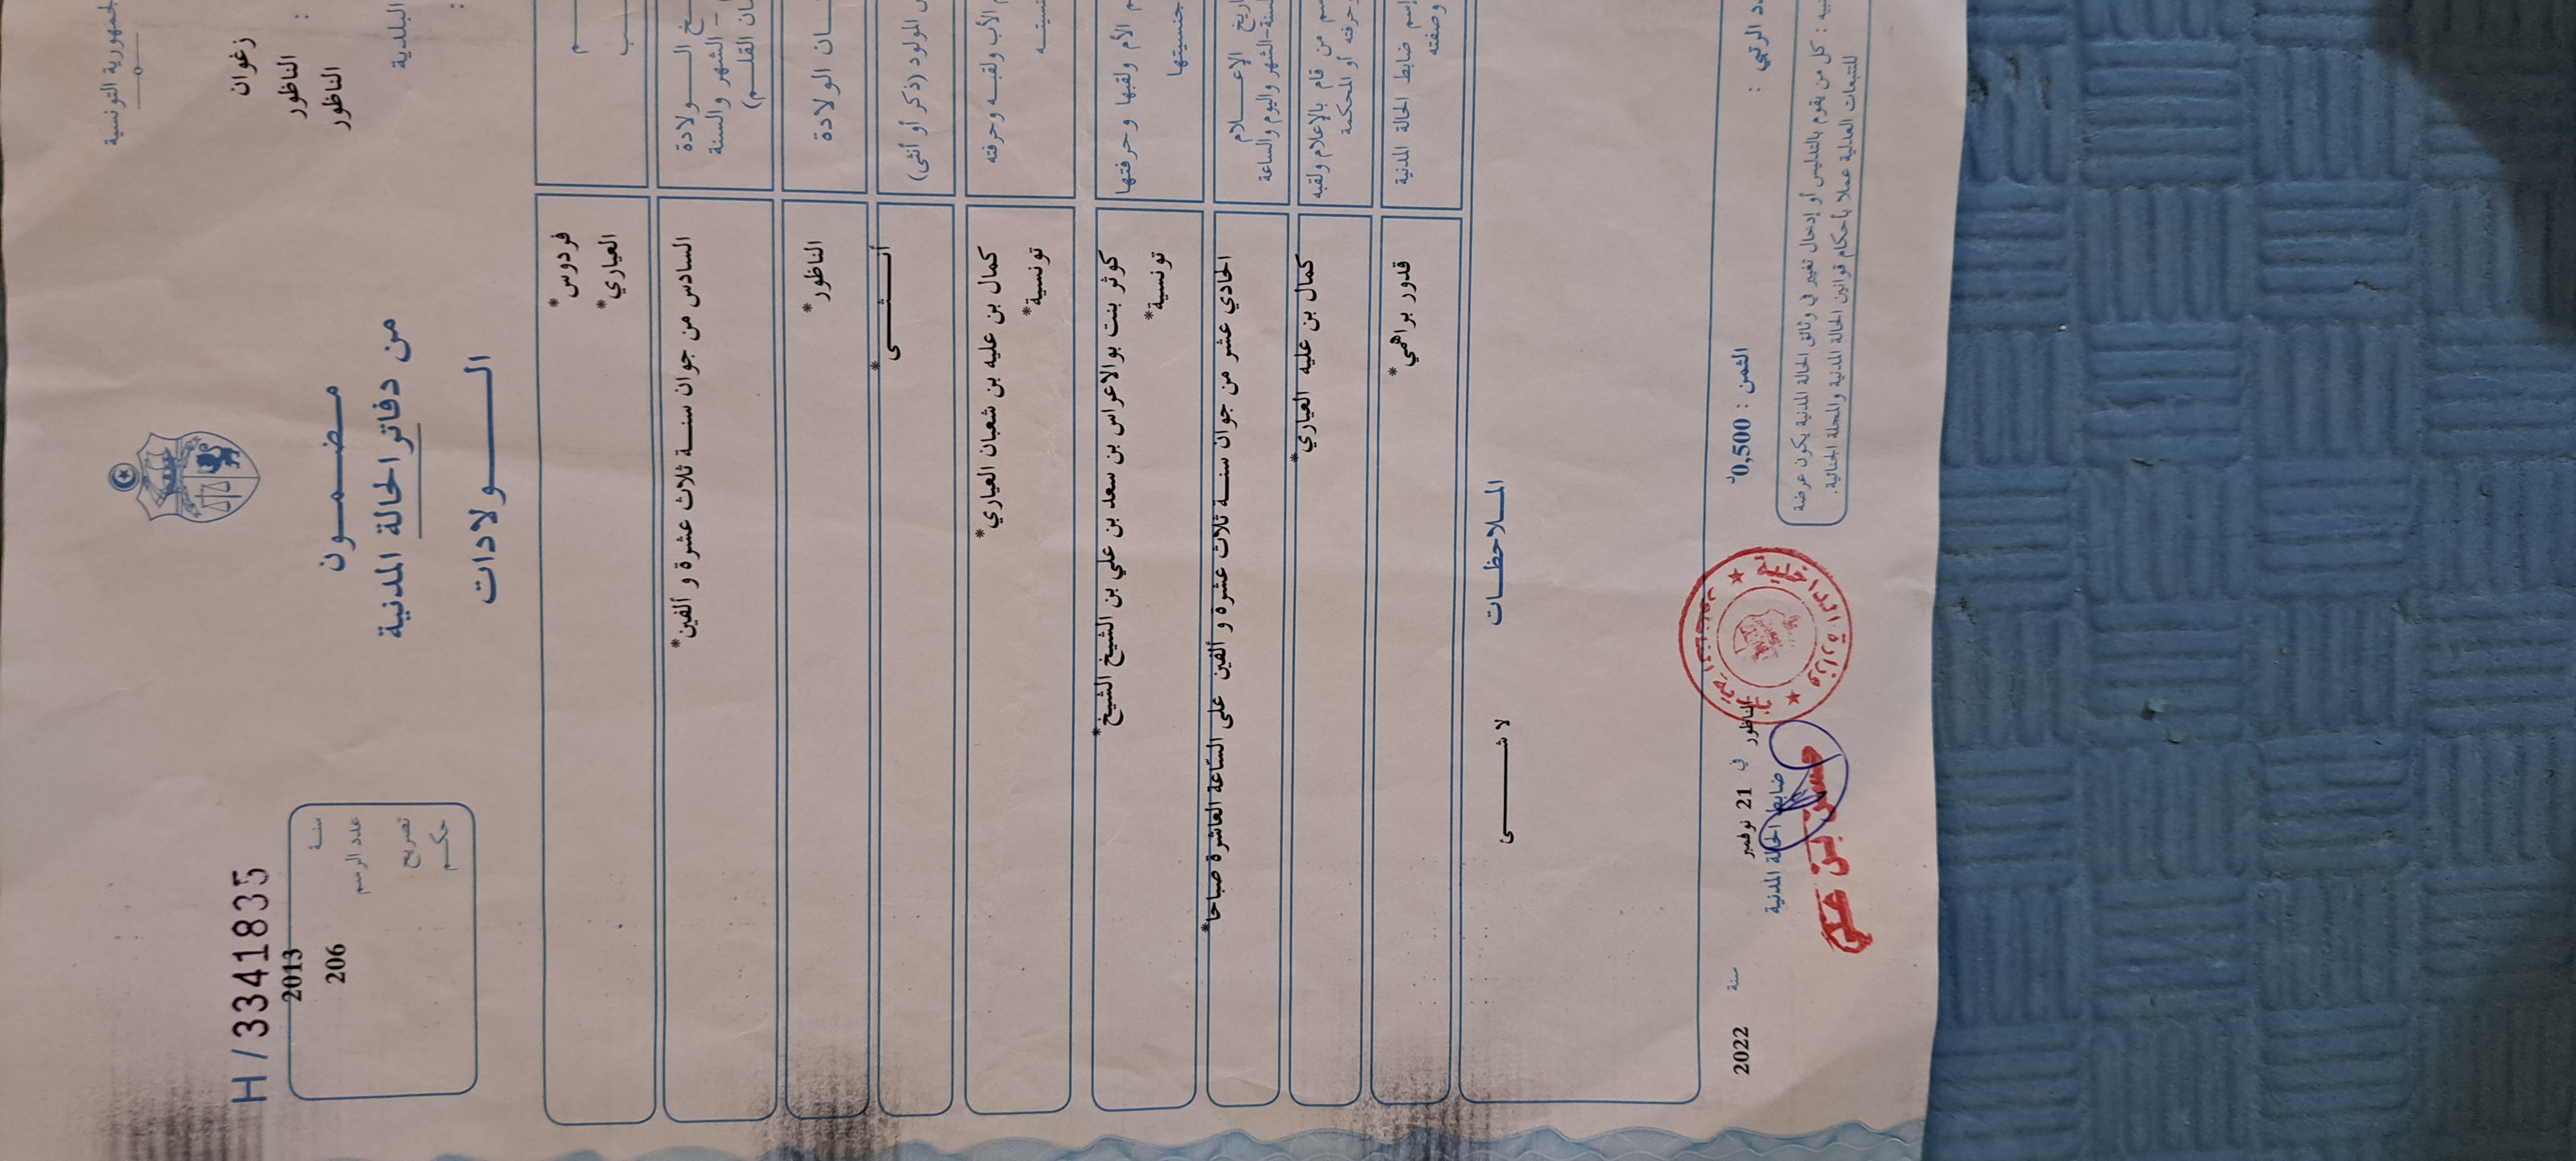 الجمهورية التونسية
زغوان :
الناظور
الناظور
البلدية :
H/33418
2013 سنة
206 عدد الرسم
تصريح
حكم
مضمون
من دفاتر الحالة المدنية
الولادات
فردوس*
العياري*
الولادة
الشهر والسنة
القلم)
السادس من جوان سنة ثلاث عشرة و ألفين*
الولادة
الناظور*
المولود (ذكر أو أنثى)
أنثى*
الأب ولقبه وحرفته
كمال بن عليه بن شعبان العياري*
تونسية*
الأم ولقبها وحرفتها
جنسيتها
كوثر بنت بوالاعراس بن سعد بن علي بن الشيخ الشيخ*
تونسية*
الإعلام
السنة-الشهر واليوم والساعة
الحادي عشر من جوان سنة ثلاث عشرة و ألفين على السّاعة العاشرة صباحا*
من قام بالإعلام ولقبه
وحرفته أو المحكمة
كمال بن عليه العياري*
إسم ضابط الحالة المدنية
وصفته
قدور براهمي*
الملاحظات
لا شى
الرتبي :
الثمن : 0,500د
الناظور في 21 نوفمبر سنة 2022
ضابط الحالة المدنية
كل من يقوم بالتدليس أو إدخال تغيير في وثائق الحالة المدنية يكون عرضة
للتتبعات العدلية عملا بأحكام قوانين الحالة المدنية والمجلة الجنائية.
وزارة الداخلية